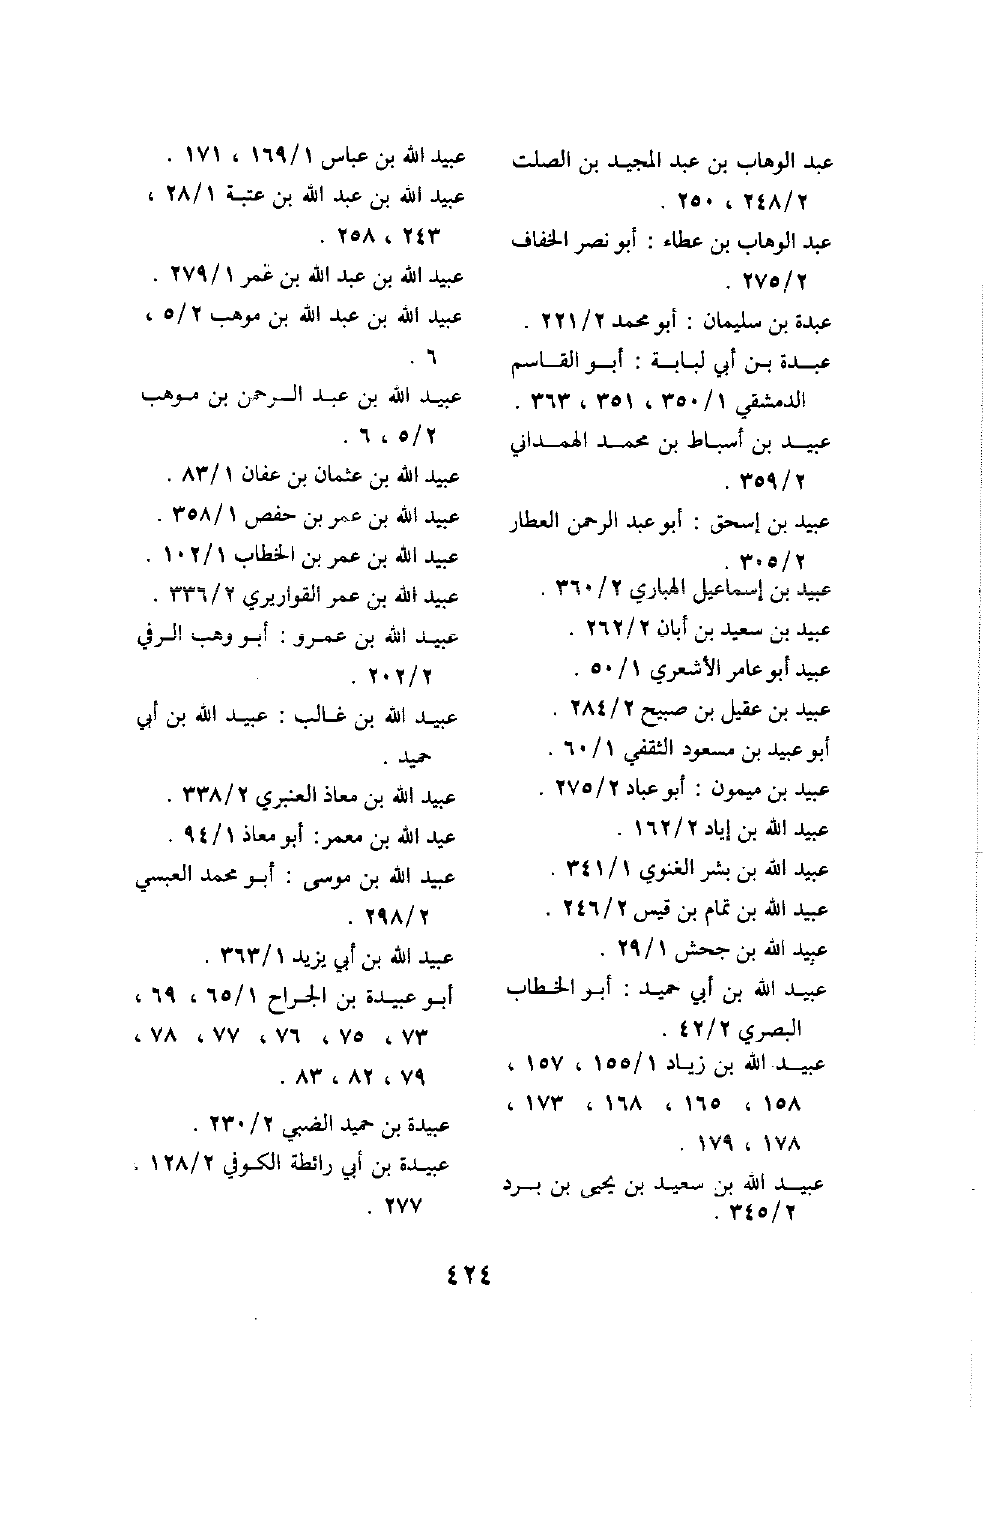 عبد الوهاب بن عبد المجيد بن الصلت
٢٤٨/٢ ، ٢٥٠ .
عبد الوهاب بن عطاء : أبو نصر الخفاف
٢٧٥/٢ .
عبدة بن سليمان : أبو محمد ٢٢١/٢ .
عبدة بن أبي لبابة : أبو القاسم
الدمشقي ٣٥٠/١ ، ٣٥١ ، ٣٦٣ .
عبيد بن أسباط بن محمد الهمداني
٣٥٩/٢ .
عبيد بن إسحق : أبو عبد الرحمن العطار
٣٠٥/٢ .
عبيد بن إسماعيل الهباري ٣٦٠/٢ .
عبيد بن سعيد بن أبان ٢٦٢/٢ .
عبيد أبو عامر الأشعري ٥٠/١ .
عبيد بن عقيل بن صبيح ٢٨٤/٢ .
أبو عبيد بن مسعود الثقفي ٦٠/١ .
عبيد بن ميمون : أبو عباد ٢٧٥/٢ .
عبيد الله بن إياد ١٦٢/٢ .
عبيد الله بن بشر الغنوي ٣٤١/١ .
عبيد الله بن تمام بن قيس ٢٤٦/٢ .
عبيد الله بن جحش ٢٩/١ .
عبيد الله بن أبي حميد : أبو الخطاب
البصري ٤٢/٢ .
عبيد الله بن زياد ١٥٥/١ ، ١٥٧ ،
١٥٨ ، ١٦٥ ، ١٦٨ ، ١٧٣ ،
١٧٨ ، ١٧٩ .
عبيد الله بن سعيد بن يحيى بن برد
٣٤٥/٢ .
عبيد الله بن عباس ١٦٩/١ ، ١٧١ .
عبيد الله بن عبد الله بن عتبة ٢٨/١ ،
٢٤٣ ، ٢٥٨ .
عبيد الله بن عبد الله بن عُمر ٢٧٩/١ .
عبيد الله بن عبد الله بن موهب ٥/٢ ،
٦ .
عبيد الله بن عبد الرحمن بن موهب
٥/٢ ، ٦ .
عبيد الله بن عثمان بن عفان ٨٣/١ .
عبيد الله بن عمر بن حفص ٣٥٨/١ .
عبيد الله بن عمر بن الخطاب ١٠٢/١ .
عبيد الله بن عمر القواريري ٣٣٦/٢ .
عبيد الله بن عمرو : أبو وهب الرقي
٢٠٢/٢ .
عبيد الله بن غالب : عبيد الله بن أبي
حميد .
عبيد الله بن معاذ العنبري ٣٣٨/٢ .
عبد الله بن معمر: أبو معاذ ٩٤/١ .
عبيد الله بن موسى : أبو محمد العبسي
٢٩٨/٢ .
عبيد الله بن أبي يزيد ٣٦٣/١ .
أبو عبيدة بن الجراح ٦٥/١ ، ٦٩ ،
٧٣ ، ٧٥ ، ٧٦ ، ٧٧ ، ٧٨ ،
٧٩ ، ٨٢ ، ٨٣ .
عبيدة بن حميد الضبي ٢٣٠/٢ .
عبيدة بن أبي رائطة الكوفي ١٢٨/٢ ،
٢٧٧ .
٤٢٤